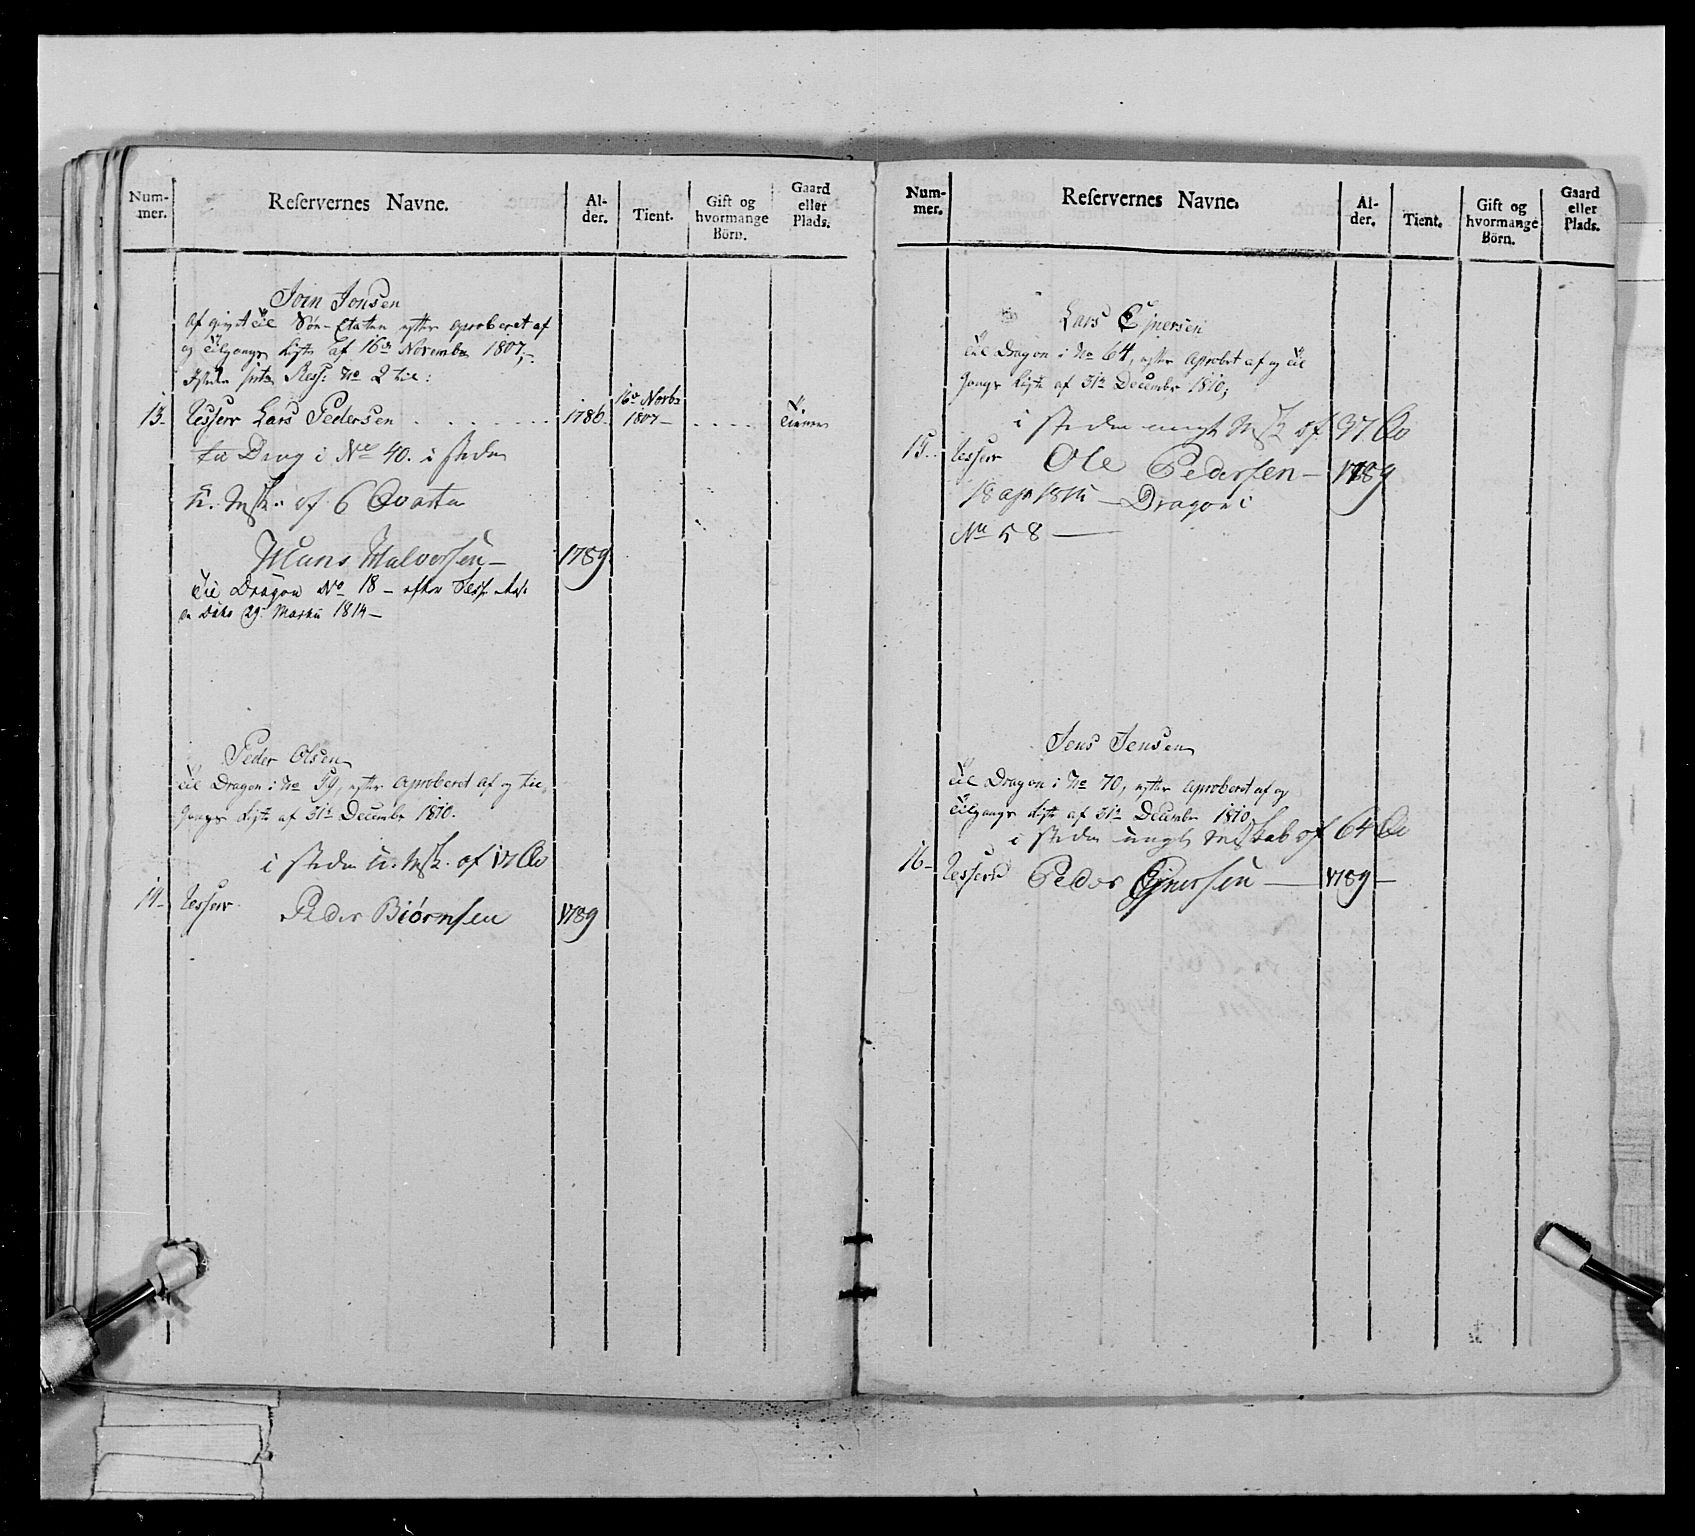 Num-
mer.
Reservernes Navne.
Al-
der.
Tient.
Gift og
hvormange
Börn.
Gaard
eller
Plads.
Join Jonsen
Af givet til Søe-Etaten efter aproberet af
og tilgangs Liste af 16de Novembr 1807,
Isteden Res: No 2 til:
13. Reserv Lars Pedersen 1786. 16de Novbr 1807
Drag i No 40. i steden
u. Msk. of 6 Qvarter
Hans Halvorsen 1789
til Dragon No 18 efter
29 Martii 1814
Peder Olsen
til Dragon i No 59, efter aproberet af og til-
gangs Liste af 31te Decembr 1810.
i steden u. Msk. of 17 Qv
14 Reserv Peder Biørnsen 1789
Num-
mer.
Reservernes Navne.
Al-
der.
Tient.
Gift og
hvormange
Börn.
Gaard
eller
Plads.
Lars Ejnersen
til Dragon i No 64, efter aprobet af og til
gangs Liste af 31te Decembr 1810;
i steden ungt Msk of 37 Qv
15. Reserv Ole Pedersen 1789
18 apr Dragon i
No 58
Jens Jensen
til Dragon i No 70, efter aproberet af og
tilgangs Liste af 31te Decembr 1810.
i steden ungt Mskab of 64 Qv
16 Reserve Peder Ejnersen 1789